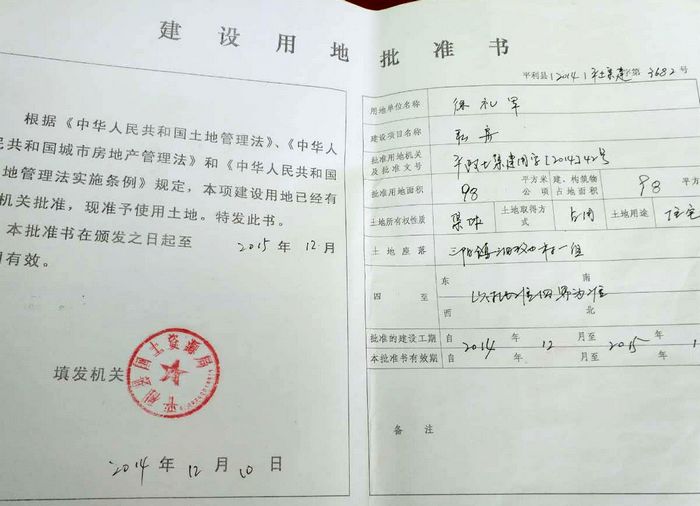 建设用地批准书
平利县(2014)平土集建字第3682号
根据《中华人民共和国土地管理法》、《中华人
民共和国城市房地产管理法》和《中华人民共和国
地管理法实施条例》规定，本项建设用地已经有
机关批准，现准予使用土地。特发此书。
本批准书在颁发之日起至 2015年12月
有效。
填发机关
平利县国土资源局
2014年12月10日
用地单位名称 徐礼军
建设项目名称 私房
批准用地机关及批准文号 平政土集建用字[2014]42号
批准用地面积 98 平方米 公顷 建、构筑物占地面积 98 平方
土地所有权性质 集体 土地取得方式 占用 土地用途 住宅
土地座落 三阳镇 村一组
四至 东 南
四界为准
西 北
批准的建设工期 自2014年12月至2015年1
本批准书有效期 自 年 月至 年
备注